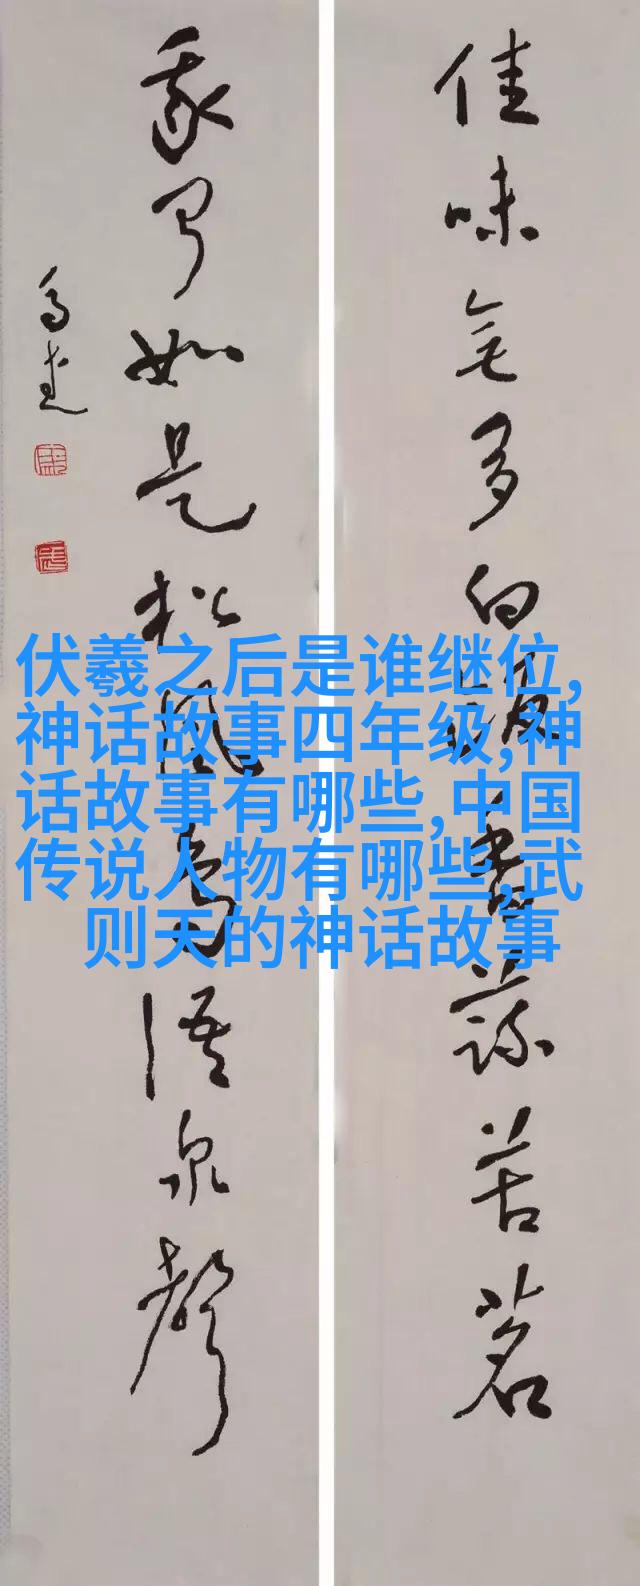 佳味無多白飯香蔬苦茗
我聞如是松風鳥語泉聲
伏羲之后是谁继位,
神话故事四年级,神
话故事有哪些,中国
传说人物有哪些,武
则天的神话故事